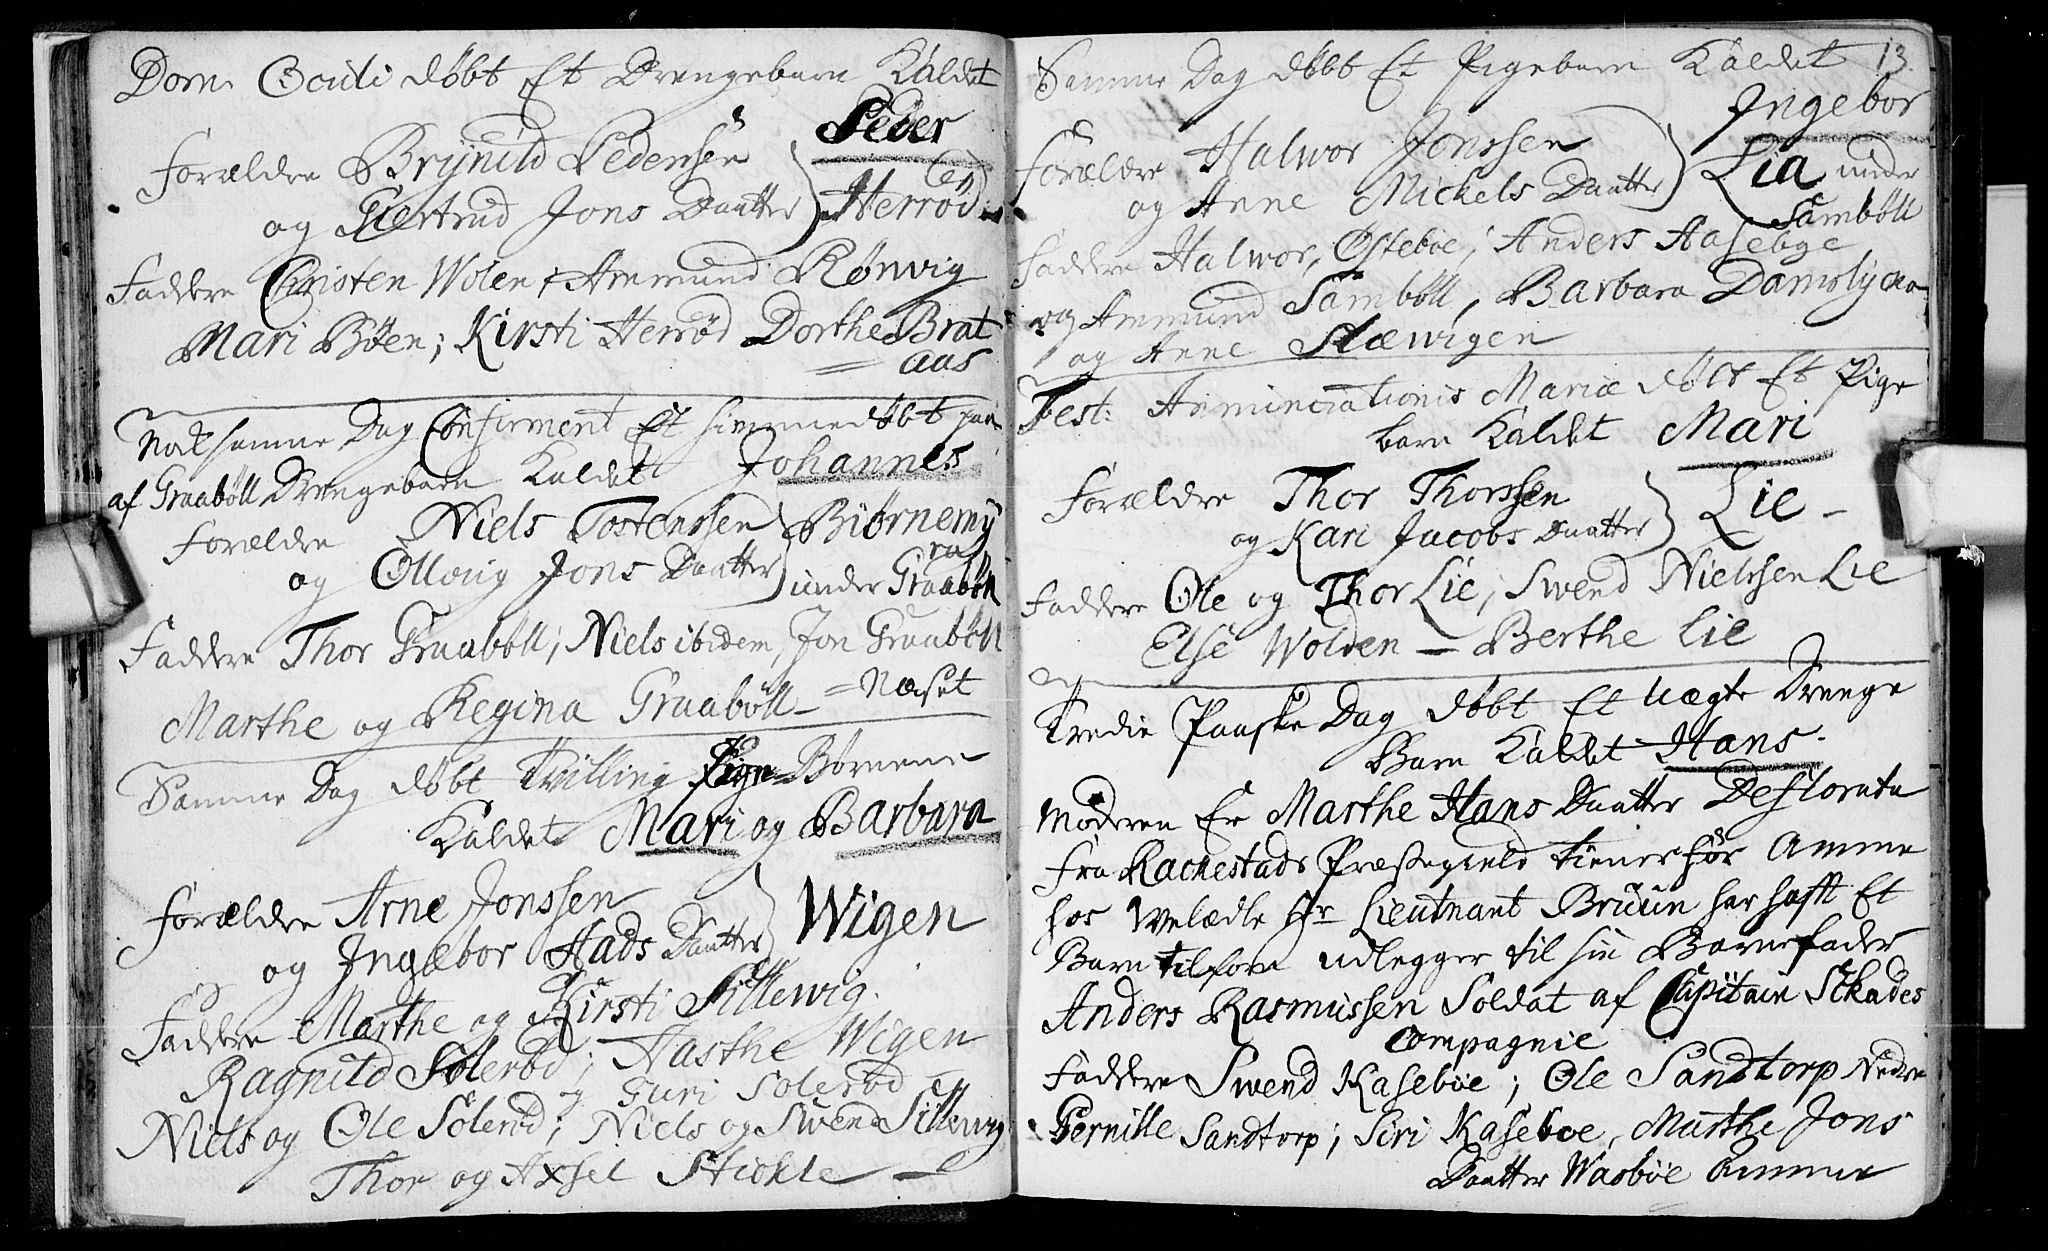 Dom. Oculi døbt Et Drengebarn Kaldet
Peder
Forældre Brynild Pedersen
(en)
og Giertrud Jons Daatter Herrød
Faddere Christen Wolen, Ammund Rønvig
Mari Böen; Kirsti Herröd Dorthe Brat
= aas
Nok samme Dag Confirmert Et hiemmedøbt
af Graaböll Drengebarn Kaldet Johannes
Forældre Niels Tostenssen Biörnemy
ra
og Olloug Jons Daatter under Graaböll
Faddere Thor Graaböll; Niels ibidem, Jon Graaböll
Marthe og Regina Graaböll = Næset
Samme Dag døbt Tvilling Pige Börnene
Kaldet Mari og Barbara
Forældre Arne Jonssen
Wigen
og Ingebor Hads Daatter
Faddere Marthe og Kirsti Sillewig.
Ragnild Solerød; Aasthe Wigen
og Guri Solerød
Niels og Ole Solerød; Niels og Swend Sillewig
Thor og Axsel Stickle
13.
Samme Dag døbt Et Pigebarn Kaldet
Ingebor
Forældre Halwor Jonssen
Lia under
og Anne Mickels Daatter
Samböll
Faddere Halwor, Östeböe; Anders Aasebye
og Ammund Samböll, Barbara Damslyckan
og Anne Slæwigen
Fest: Annunciationis Mariæ døbt Et Pige
barn Kaldet Mari
Forældre Thor Thorssen
Lie -
og Kari Jacobs Daatter
Faddere Ole og Thor Lie, Swend Nielssen Lie
Else Wolden - Berthe Lie
Tredie Paaske Dag døbt Et Uægte Drenge
Barn Kaldet Hans.
Moderen Er Marthe Hans Daatter Deflorata
Fra Rackestads Præstegield tiener för Amme
hos Welædle Hr Lieutnant Bruun har hafft Et
Barn tilforn udlegger til sin Barnefader
Anders Rasmussen Soldat af Capitain Skades
Compagnie
Faddere Swend Kaseböe; Ole Sandtorp Nedre
Pernille Sandtorp; Siri Kaseboe, Marthe Jons
Daatter Wasböe Amme